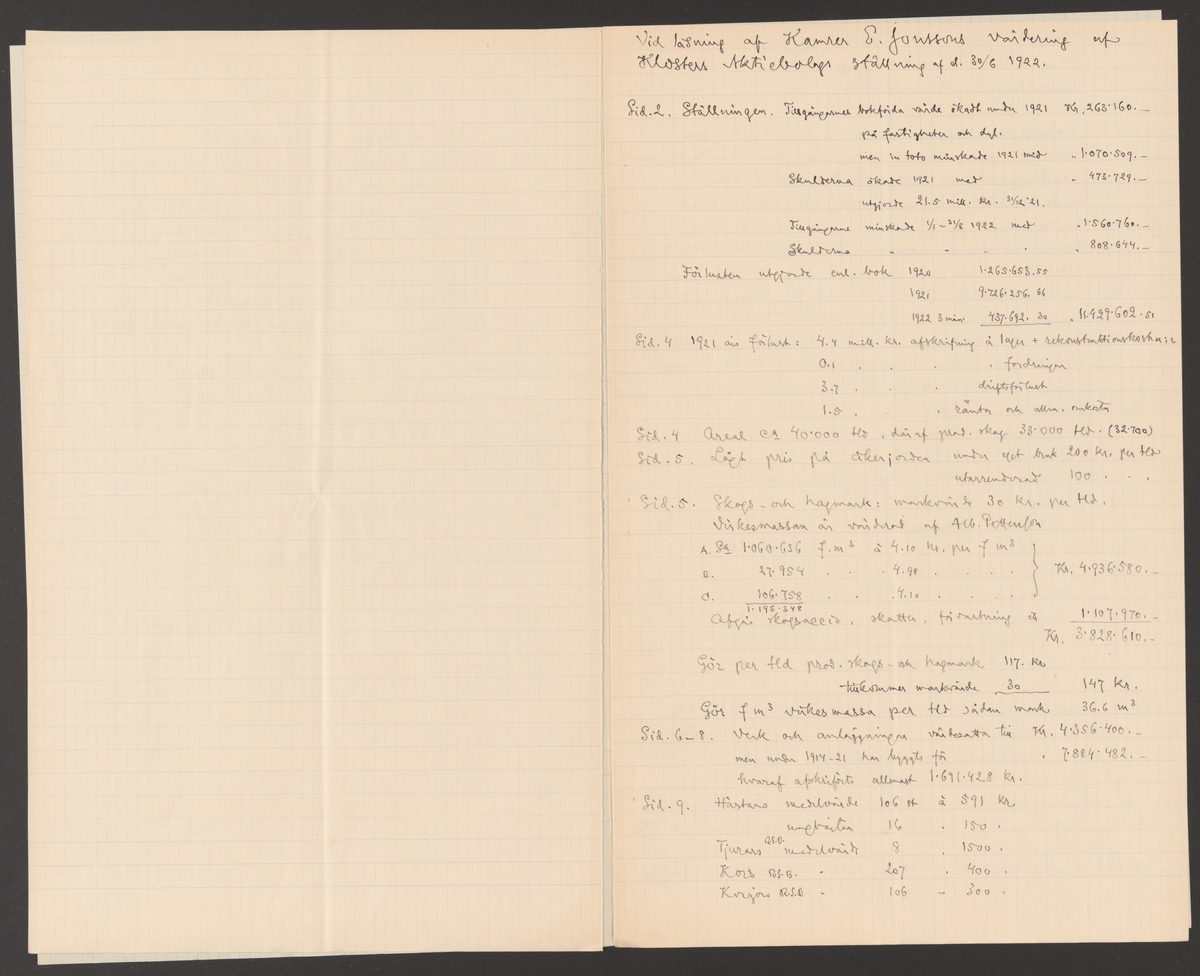 Vid läsning af Kamrer E. Jonssons värdering af
Klosters Aktiebolags ställning af d. 30/6 1922.
Sid. 2. Ställningen. Tillgångarnes bokförda värde ökadt under 1921 Kr. 263.160.–
på fastigheter och dyl.
men in toto minskade 1921 med „ 1.070.509.–
Skulderna ökade 1921 med „ 473.729.–
utgjorde 21.5 mill. kr. 31/12 21.
Tillgångarne minskade 1/1–31/3 1922 med „ 1.560.760.–
Skulderna „ „ „ „ 808.644.–
Förlusten utgjorde enl. bok 1920 1.265.653.55
1921 9.726.256.66
1922 3 mån. 437.692.30 „ 11.429.602.51
Sid. 4 1921 års förlust: 4.4 mill. kr. afskrifning å lager + rekonstruktionskostn:r
0.1 . . . . fordringar
3.7 . . . driftsförlust
1.5 . . . räntor och allm. omkostn
Sid. 4 Areal ca 40.000 tld, däraf prod. skog 33.000 tld. (32.700)
Sid. 5. Lågt pris på åkerjorden under eget bruk 200 kr. per tld
utarrenderad 100 . . .
Sid. 5. Skogs- och hagmark: markvärde 30 kr. per tld.
Virkesmassan är värderad af Alb. Petterson
A. Ca 1.060.636 f.m³ à 4.10 kr. per f m³
B. 27.954 . . . 4.90 . . . .
C. 106.758 . . . 4.10 . . . . Kr. 4.936.580.–
1.195.348
Afgår skogsaccis, skatter, förvaltning etc 1.107.970.–
Kr. 3.828.610.–
Gör per tld prod. skogs- och hagmark 117. kr
tillkommer markvärde 30 147 kr.
Gör f m³ virkesmassa per tld sådan mark 36.6 m³
Sid. 6–8. Verk och anläggningar värdesatta till Kr. 4.356.400.–
men under 1914–21 har byggts för . 7.884.482.–
hvaraf afskrifvits allenast 1.691.428 kr.
Sid. 9. Hästars medelvärde 106 st à 591 kr
unghästar 16 . 150 .
Tjurars R.S.B. medelvärde 8 . 1500 .
Kors R.S.B. „ 207 . 400 .
Kvigors R.S.B „ 106 „ 300 .